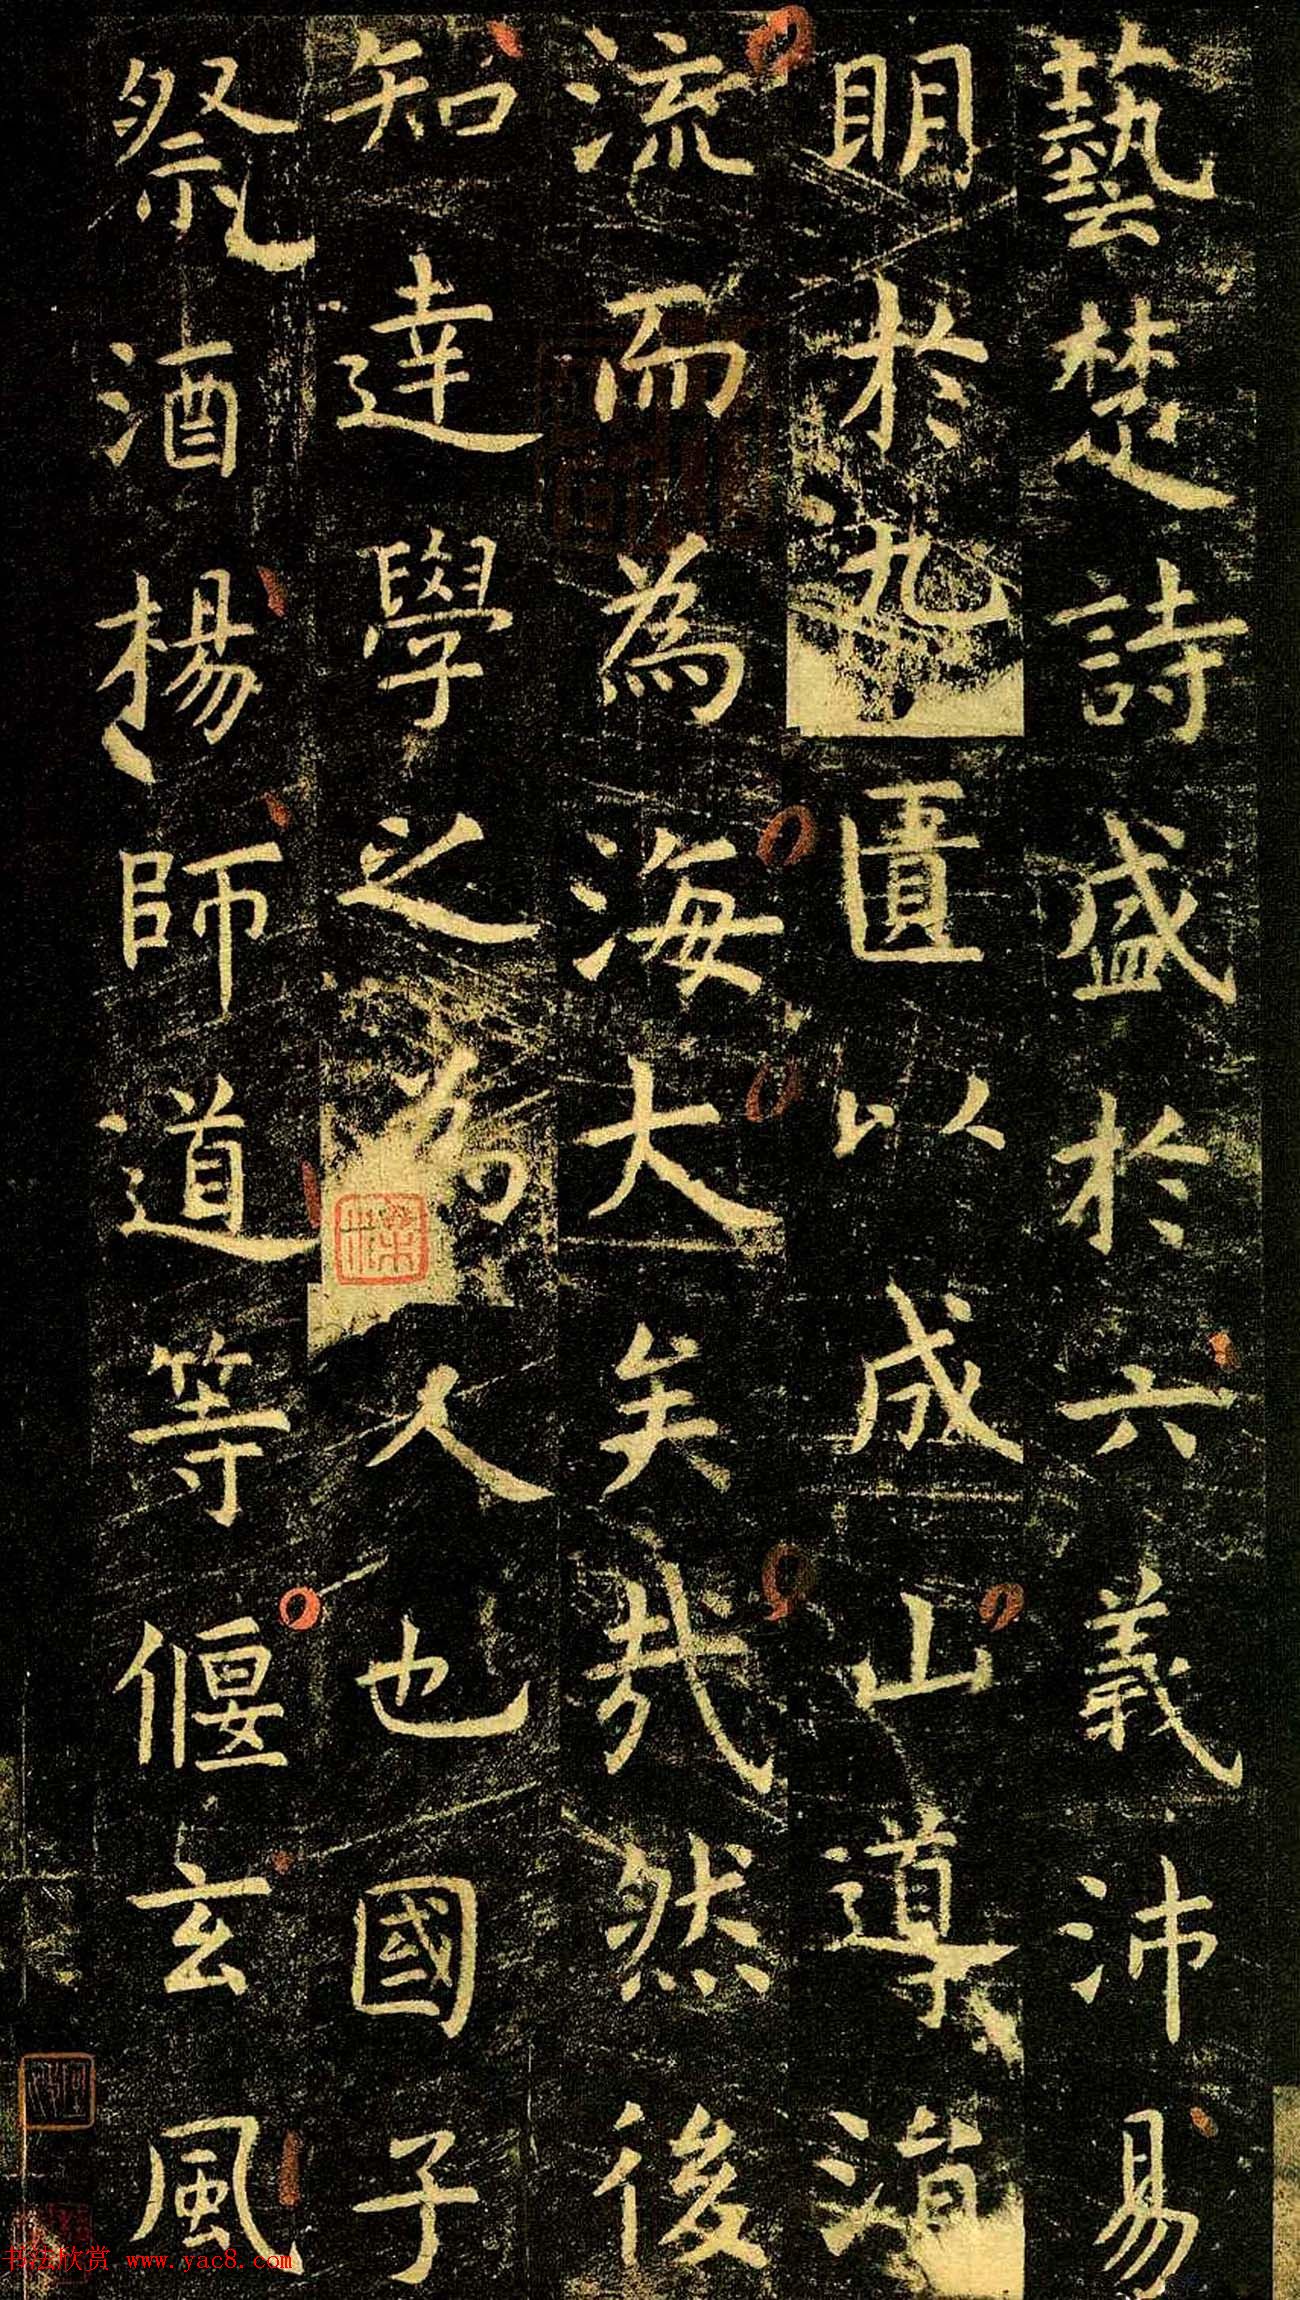 藝楚詩盛於六義沛易
明於九匱以成山導涓
流而為海大矣哉然後
知達學之為人也國子
祭酒楊師道等偃玄風
书法欣赏 www.yac8.com